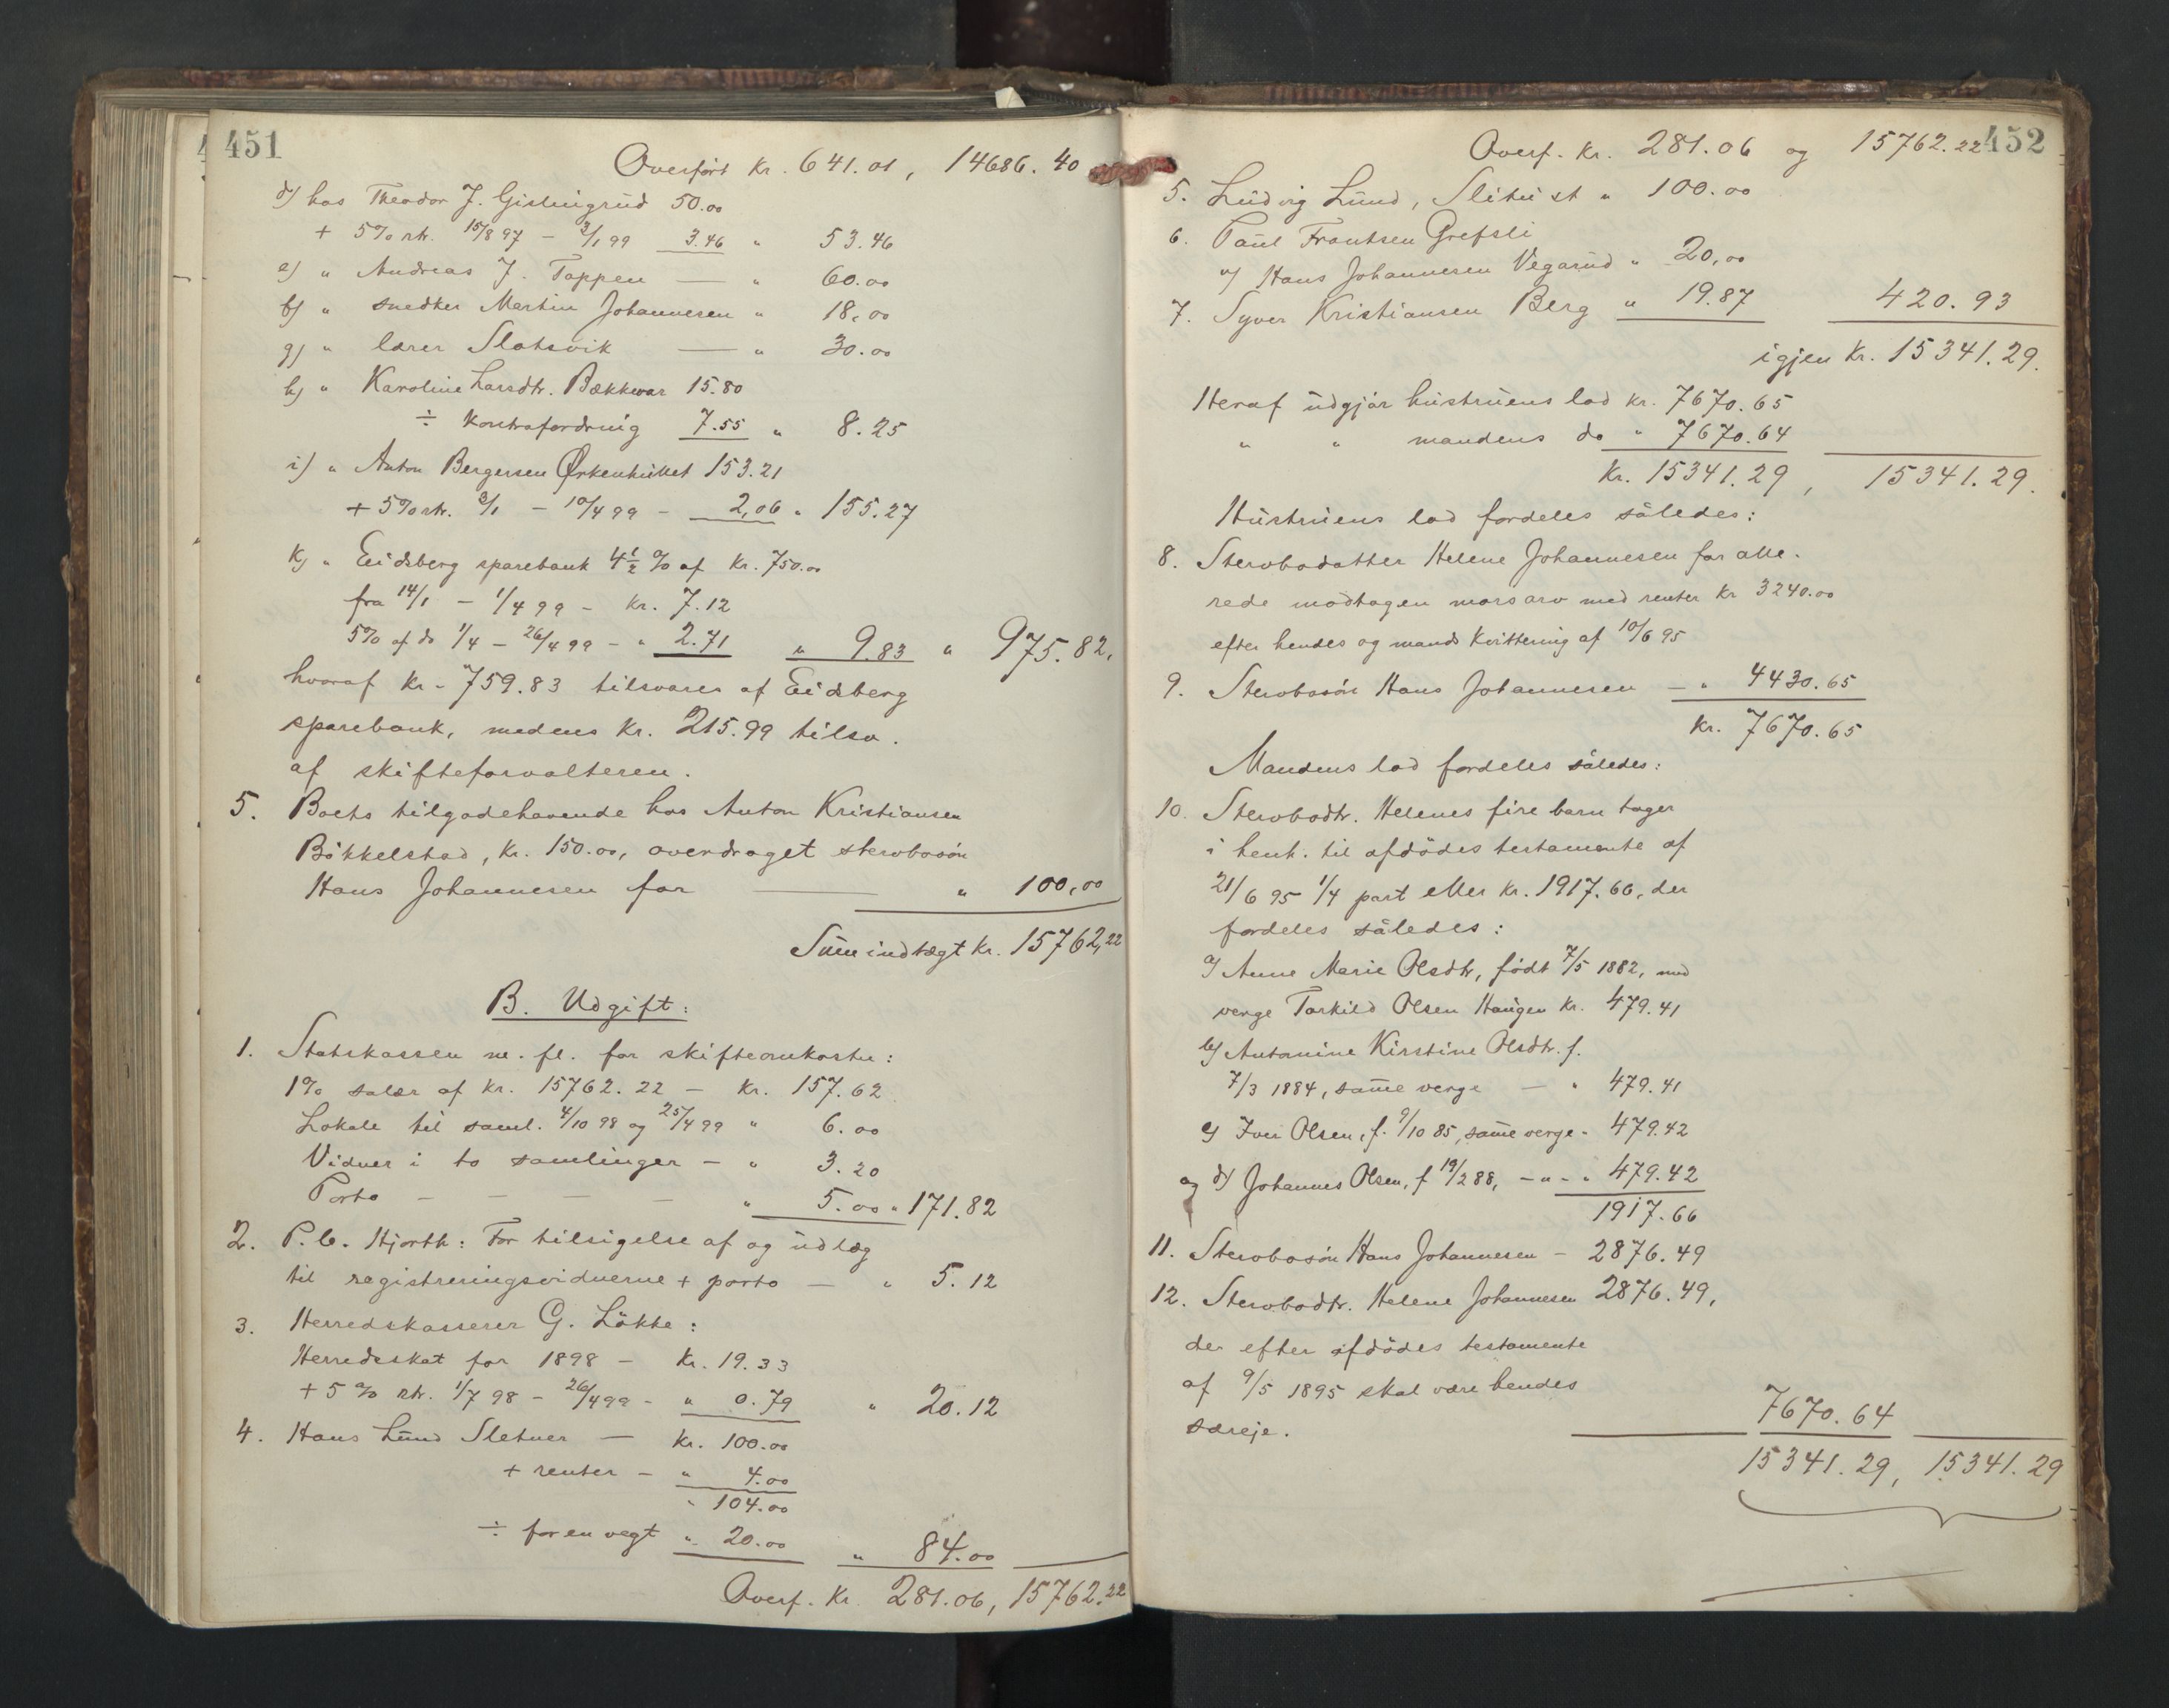 451
Overført Kr. 641.01, 14686.40
d) hos Theodor J. Gislingrud 50.00
+ 5% rtr. 15/8 97 - 3/1 99 3.46 " 53.46
e) " Andreas J. Toppen — " 60.00
f) " snedker Martin Johannesen " 18.00
g) " lærer Slotsvik — " 30.00
h) " Karoline Larsdtr. Bækkevar 15.80
÷ Kontrafordring 7.55 " 8.25
i) " Anton Bergersen Ørkenhullet 153.21
+ 5% rtr. 3/1 - 10/4 99 - 2,06 " 155.27
k) " Eidsberg sparebank 4½ % af Kr. 750.00
fra 14/1 - 1/4 99 - Kr. 7.12
5% af do 1/4 - 26/4 99 - " 2.71 " 9.83 " 975.82,
hvoraf Kr. 759.83 tilsvares af Eidsberg
sparebank, medens Kr. 215.99 tilsv.
af skifteforvalteren.
5. Boets tilgodehavende hos Anton Kristiansen
Bökkelstad, Kr. 150.00, overdraget stervbosön
Hans Johannesen for — " 100,00
Sum indtægt Kr. 15762,22
B. Udgift:
1. Statskassen m. fl. for skifteomkostn:
1% salær af Kr. 15762.22 - Kr. 157.62
Lokale til saml. 4/10 98 og 25/4 99 " 6.00
Vidner i to samlinger - " 3.20
Porto - - - - " 5.00 " 171.82
2. P. C. Hjorth: For tilsigelse af og udlæg
til registreringsvidnerne + porto — " 5.12
3. Herredskasserer G. Løkke:
Herredsskat for 1898 - Kr. 19.33
+ 5 % rtr. 1/7 98 - 26/4 99 - " 0.79 " 20.12
4. Hans Lund Sletner — Kr. 100.00
+ renter - " 4.00
" 104.00
÷ for en vegt " 20.00 " 84.00
Overf. Kr. 281.06, 15762.22
452
Overf. Kr. 281.06 og 15762.22
5. Ludvig Lund, Slitu st " 100.00
6. Paul Frantsen Grefsli
v/ Hans Johannesen Vegarud " 20,00
7. Syver Kristiansen Berg " 19.87 420.93
igjen Kr. 15341.29.
Heraf udgjør hustruens lod Kr. 7670.65
" " mandens do " 7670.64
Kr. 15341.29, 15341.29.
Hustruens lod fordeles således:
8. Stervbodatter Helene Johannesen har alle-
rede modtagen morsarv med renter Kr 3240.00
efter hendes og mands Kvittering af 10/6 95
9. Stervbosön Hans Johannesen - " 4430.65
Kr. 7670.65
Mandens lod fordeles således:
10. Stervbodtr. Helenes fire barn tager
i henh. til afdödes testamente af
21/6 95 1/4 part eller Kr. 1917.66, der
fordeles således:
a) Anne Marie Olsdtr, født 7/5 1882, med
verge Torkild Olsen Haugen Kr. 479.41
b) Antonine Kirstine Olsdtr. f.
7/3 1884, samme verge - " 479.41
c) Iver Olsen, f. 9/10 85, samme verge - 479.42
og d) Johannes Olsen, f 19/2 88, - " - " 479.42
1917.66
11. Stervbosön Hans Johannesen - 2876.49
12. Stervbodtr. Helene Johannesen 2876.49,
der efter afdödes testamente
af 9/5 1895 skal være hendes
særeje. 7670.64
15341.29, 15341.29